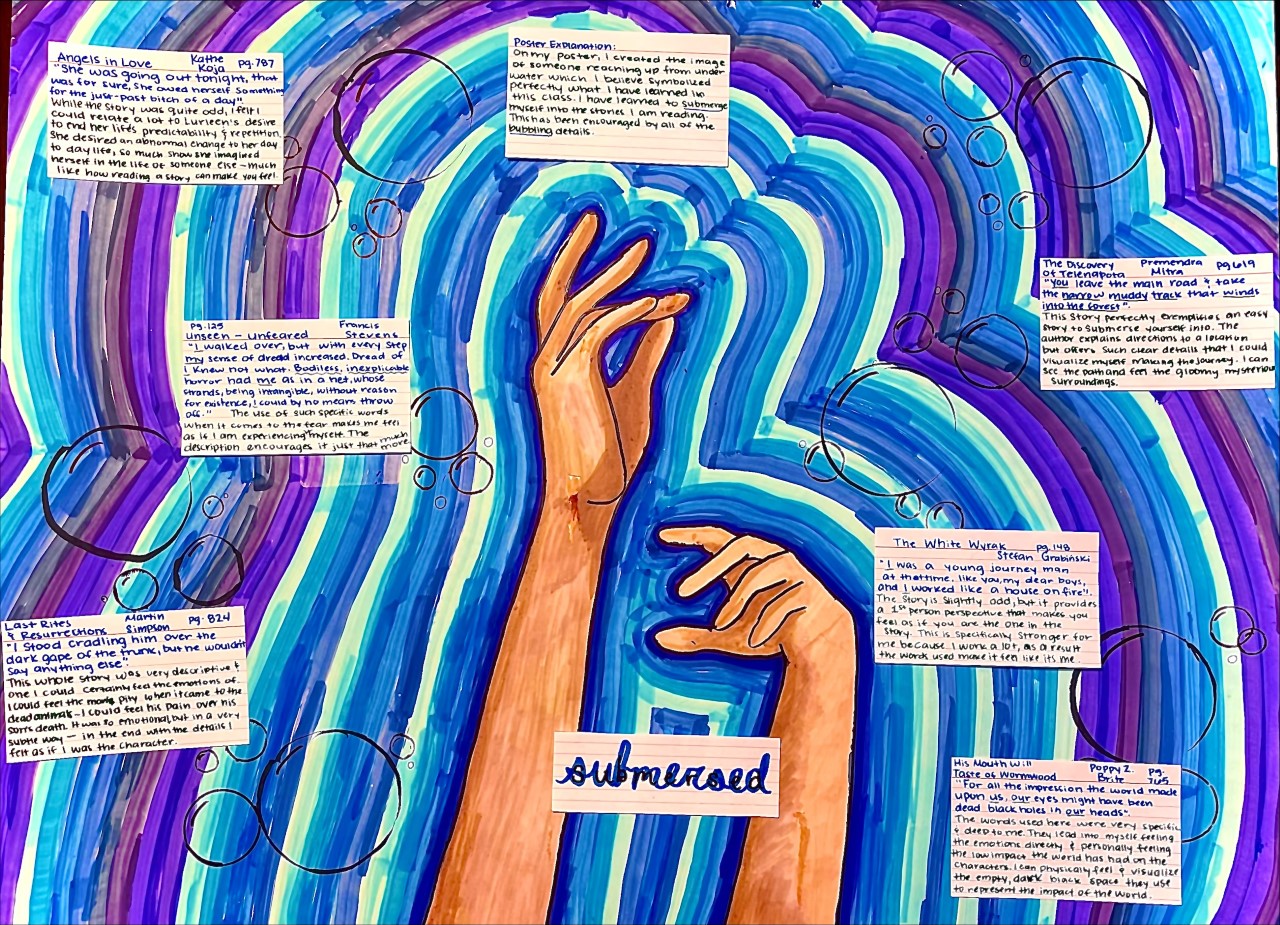 Angels in Love Kathe Koja pg.787
"She was going out tonight, that
was for sure, she owed herself something
for the just-past bitch of a day".
While the story was quite odd, I felt I
could relate a lot to Lurleen's desire
to end her life's predictability & repetition.
She desired an abnormal change to her day
to day life, so much show she imagined
herself in the life of someone else - much
like how reading a story can make you feel.
Poster Explanation:
On my poster, I created the image
of someone reaching up from under
water which I believe symbolized
perfectly what I have learned in
this class. I have learned to submerge
myself into the stories I am reading.
This has been encouraged by all of the
bubbling details.
The Discovery of Telenapota Premendra Mitra pg 619
"You leave the main road & take
the narrow muddy track that winds
into the forest".
This story perfectly exemplifies an easy
story to submerse yourself into. The
author explains directions to a location
but offers such clear details that I could
visualize myself making the journey. I can
see the path and feel the gloomy mysterious
surroundings.
pg.125 Francis
Unseen - unfeared Stevens
"I walked over, but with every step
my sense of dread increased. Dread of
I knew not what. Bodiless, inexplicable
horror had me as in a net, whose
strands, being intangible, without reason
for existence, I could by no means throw
off." The use of such specific words
when it comes to the fear makes me feel
as if I am experiencing it myself. The
description encourages it just that much more.
The White Wyrak pg.148
Stefan Grabiński
"I was a young journey man
at that time, like you, my dear boys,
and I worked like a house on fire".
The story is slightly odd, but it provides
a 1st person perspective that makes you
feel as if you are the one in the
story. This is specifically stronger for
me because I work a lot, as a result
the words used make it feel like its me.
Last Rites & Resurrections Martin Simpson pg. 824
"I stood cradling him over the
dark gape of the trunk, but he wouldnt
say anything else"
This whole story was very descriptive &
one I could certainly feel the emotions of.
I could feel the pity when it came to the
dead animals - I could feel his pain over his
sons death. It was so emotional, but in a very
subtle way - in the end with the details I
felt as if I was the character.
submersed
His Mouth Will Taste of Wormwood Poppy Z. Brite pg. 765
"For all the impression the world made
upon us, our eyes might have been
dead black holes in our heads".
The words used here were very specific
& deep to me. They lead into myself feeling
the emotions directly & personally feeling
the low impact the world has had on the
characters. I can physically feel & visualize
the empty, dark black space they use
to represent the impact of the world.